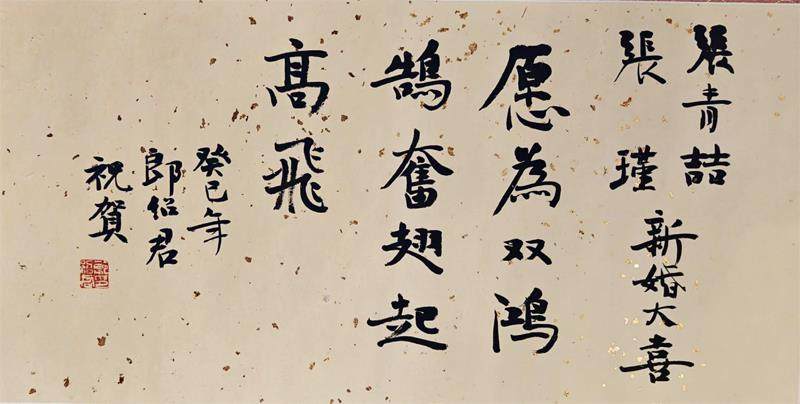 張青喆
張瑾
新婚大喜
愿為双鴻
鵠奮翅起
高飛
癸巳年
郎紹君
祝賀